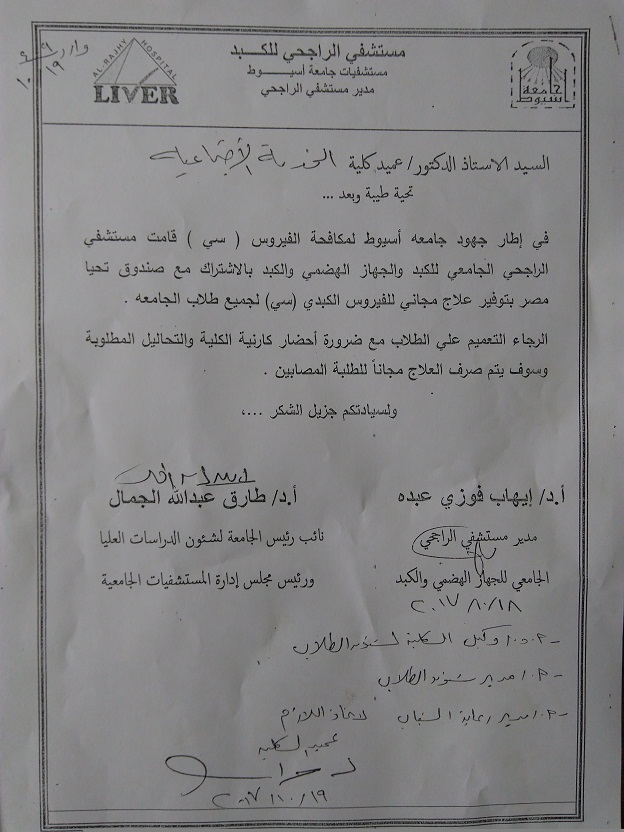 وارد
١٩
١٠
AL-RAJHY HOSPITAL
LIVER
مستشفي الراجحي للكبد
مستشفيات جامعة أسيوط
مدير مستشفي الراجحي
جامعة
أسيوط
السيد الاستاذ الدكتور/ عميد كلية الخدمة الأجتماعية
تحية طيبة وبعد ...
في إطار جهود جامعه أسيوط لمكافحة الفيروس ( سي ) قامت مستشفي
الراجحي الجامعي للكبد والجهاز الهضمي والكبد بالاشتراك مع صندوق تحيا
مصر بتوفير علاج مجاني للفيروس الكبدي (سي) لجميع طلاب الجامعه .
الرجاء التعميم علي الطلاب مع ضرورة أحضار كارنية الكلية والتحاليل المطلوبة
وسوف يتم صرف العلاج مجاناً للطلبة المصابين .
ولسيادتكم جزيل الشكر ...،
أ.د/ إيهاب فوزي عبده
مدير مستشفي الراجحي
الجامعي للجهاز الهضمي والكبد
٢٠١٧/١٠/١٨
أ.د/ طارق عبدالله الجمال
نائب رئيس الجامعة لشئون الدراسات العليا
ورئيس مجلس إدارة المستشفيات الجامعية
وكيل الكلية لشئون الطلاب
مدير شئون الطلاب
مدير رعاية الشباب لاتخاذ اللازم
عميد الكلية
٢٠١٧/١٠/١٩